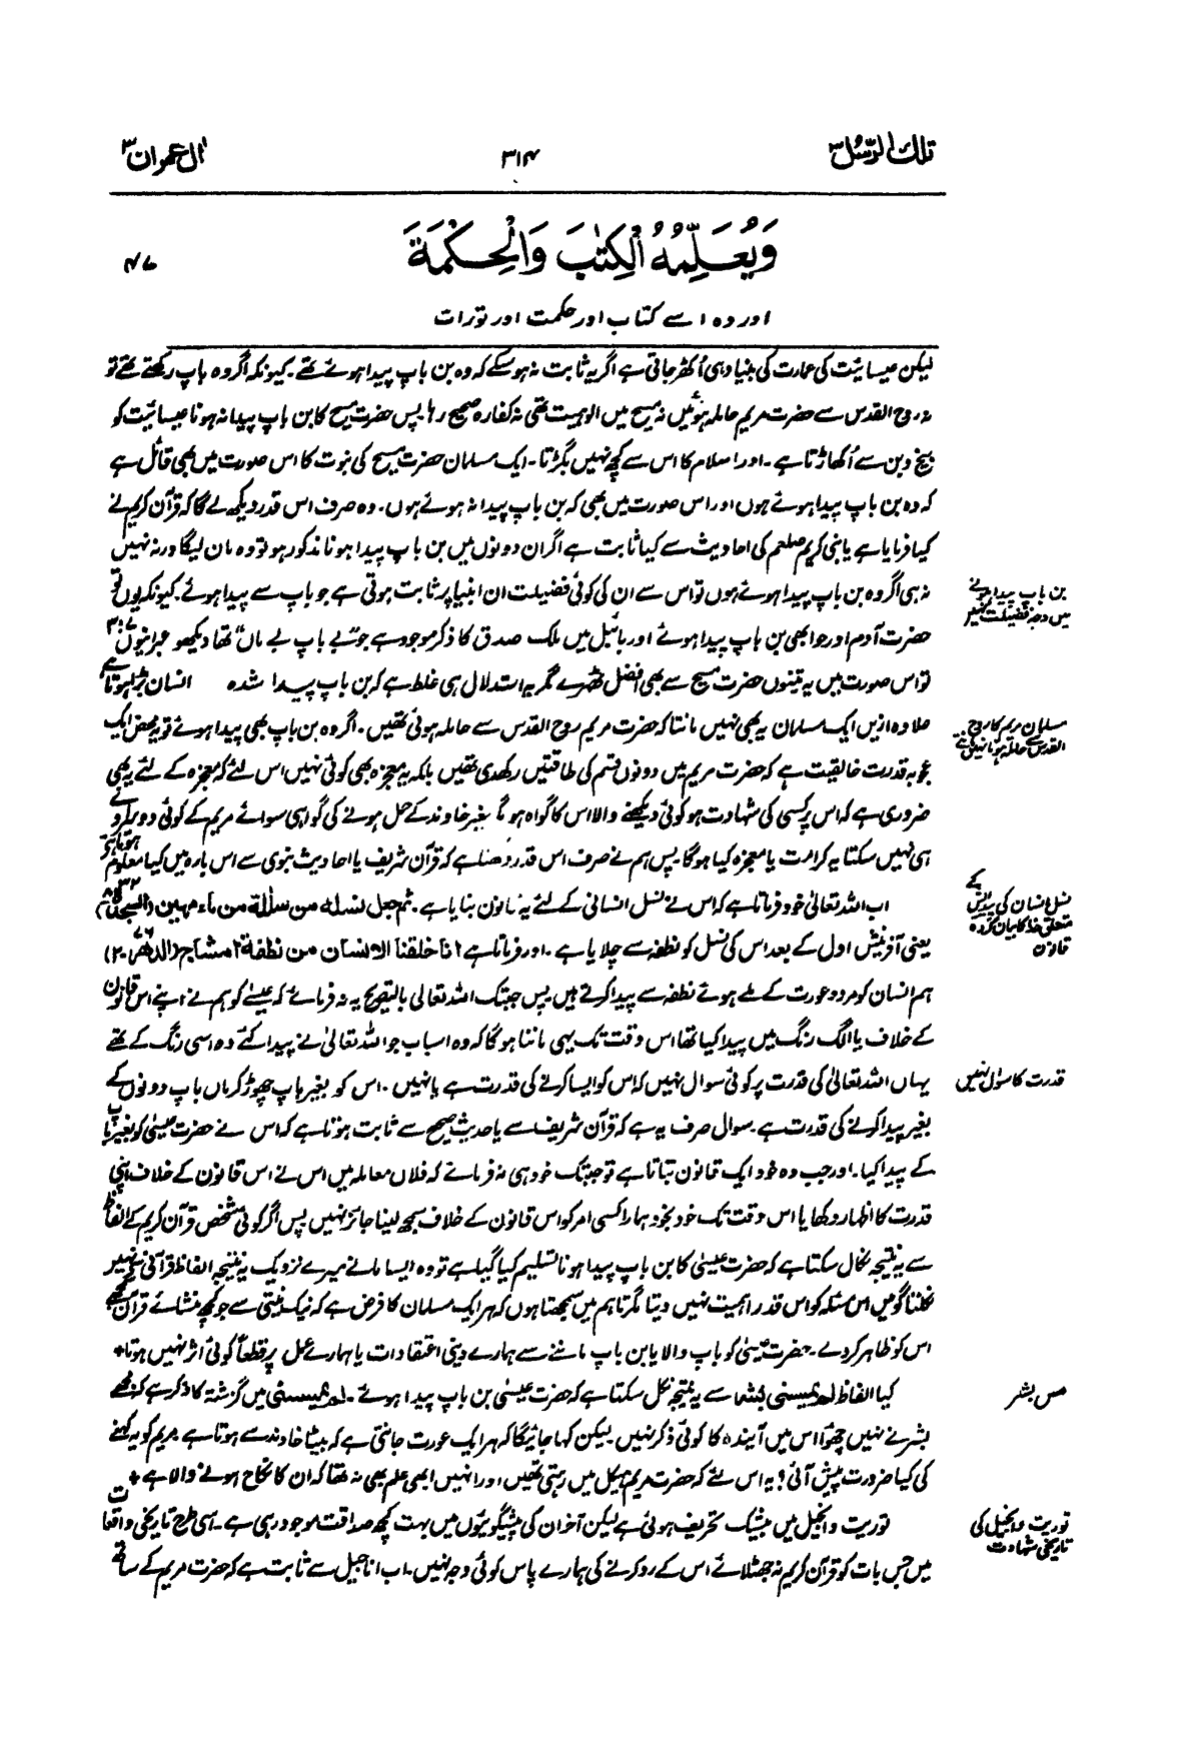 تلك الرسل ۳
۳۱۴
ال عمران ۳
وَيُعَلِّمُهُ الْكِتٰبَ وَالْحِكْمَةَ
۴۷
اور وہ اسے کتاب اور حکمت اور تورات
لیکن عیسائیت کی عمارت کی بنیاد ہی اُکھڑ جاتی ہے اگر یہ ثابت نہ ہو سکے کہ وہ بن باپ پیدا ہوئے تھے۔ کیونکہ اگر وہ باپ رکھتے تھے تو
نہ روح القدس سے حضرت مریم حاملہ ہوئیں نہ مسیح میں الوہیت تھی نہ کفارہ صحیح رہا۔ پس حضرت مسیح کا بن باپ پیدا نہ ہونا عیسائیت کو
بیخ و بن سے اُکھاڑتا ہے۔ اور اسلام کا اس سے کچھ نہیں بگڑتا۔ ایک مسلمان حضرت مسیح کی نبوت کا اس صورت میں بھی قائل ہے
کہ وہ بن باپ پیدا ہوئے ہوں اور اس صورت میں بھی کہ بن باپ پیدا نہ ہوئے ہوں۔ وہ صرف اس قدر دیکھ لے گا کہ قرآن کریم نے
کیا فرمایا ہے یا نبی کریم صلعم کی احادیث سے کیا ثابت ہے اگر ان دونوں میں بن باپ پیدا ہونا مذکور ہو تو وہ مان لیگا ورنہ نہیں
نہ ہی اگر وہ بن باپ پیدا ہوئے ہوں تو اس سے ان کی کوئی فضیلت ان انبیا پر ثابت ہوتی ہے جو باپ سے پیدا ہوئے۔ کیونکہ یوں تو
بن باپ پیدا ہونے
میں وجہ فضیلت نہیں
حضرت آدم اور حوا بھی بن باپ پیدا ہوئے اور بائبل میں ملک صدق کا ذکر موجود ہے جو "بے باپ بے ماں" تھا دیکھو عبرانیوں ۷: ۳
تو اس صورت میں یہ تینوں حضرت مسیح سے بھی افضل ٹھہرے مگر یہ استدلال ہی غلط ہے کہ بن باپ پیدا شدہ انسان بڑا ہوتا ہے
علاوہ ازیں ایک مسلمان یہ بھی نہیں مانتا کہ حضرت مریم روح القدس سے حاملہ ہوئی تھیں۔ اگر وہ بن باپ بھی پیدا ہوئے تو یہ محض ایک
مسلمان مریم کا روح
القدس سے حاملہ ہونا نہیں مانتے
عجوبہ قدرت خالقیت ہے کہ حضرت مریم میں دونوں قسم کی طاقتیں رکھدی تھیں بلکہ یہ معجزہ بھی کوئی نہیں اس لئے کہ معجزہ کے لئے یہ بھی
ضروری ہے کہ اس پر کسی کی شہادت ہو کوئی دیکھنے والا اس کا گواہ ہو گا بغیر خاوند کے حمل ہونے کی گواہی سوائے مریم کے کوئی دوسرا دے
ہی نہیں سکتا یہ کرامت یا معجزہ کیا ہوگا پس ہم نے صرف اس قدر دیکھنا ہے کہ قرآن شریف یا احادیث نبوی سے اس بارہ میں کیا معلوم ہوتا ہے
اب اللہ تعالیٰ خود فرماتا ہے کہ اس نے نسل انسانی کے لئے یہ قانون بنایا ہے۔ ثم جعل نسله من سلالة من ماء مهين (السجدة ۳۲: ۸)
نسل انسان کی پیدائش کے
متعلق خدا کا بیان کردہ
قانون
یعنی آفرینش اول کے بعد اس کی نسل کو نطفہ سے چلایا ہے۔ اور فرماتا ہے انا خلقنا الانسان من نطفة امشاج (الدهر ۷۶: ۲)
ہم انسان کو مرد و عورت کے ملے ہوئے نطفہ سے پیدا کرتے ہیں پس جبتک اللہ تعالیٰ بالتصریح یہ نہ فرمائے کہ عیسے کو ہم نے اپنے اس قانون
کے خلاف یا الگ رنگ میں پیدا کیا تھا اس وقت تک یہی ماننا ہوگا کہ وہ اسباب جو اللہ تعالیٰ نے پیدا کئے وہ اسی رنگ کے تھے
یہاں اللہ تعالیٰ کی قدرت پر کوئی سوال نہیں کہ اس کو ایسا کرنے کی قدرت ہے یا نہیں۔ اس کو بغیر باپ چھوڑ کر ماں باپ دونوں کے
قدرت کا سوال نہیں
بغیر پیدا کرنے کی قدرت ہے۔ سوال صرف یہ ہے کہ قرآن شریف سے یا حدیث صحیح سے ثابت ہوتا ہے کہ اس نے حضرت عیسیٰ کو بغیر باپ
کے پیدا کیا۔ اور جب وہ خود ایک قانون بتاتا ہے تو جبتک خود ہی نہ فرمائے کہ فلاں معاملہ میں اس نے اس قانون کے خلاف اپنی
قدرت کا اظہار دکھایا اس وقت تک خود بخود ہمارا کسی امر کو اس قانون کے خلاف سمجھ لینا جائز نہیں پس اگر کوئی شخص قرآن کریم کے الفاظ
سے یہ نتیجہ نکال سکتا ہے کہ حضرت عیسیٰ کا بن باپ پیدا ہونا تسلیم کیا گیا ہے تو وہ ایسا مانے میرے نزدیک یہ نتیجہ الفاظ قرآنی سے نہیں
نکلتا گو میں اس مسئلہ کو اس قدر اہمیت نہیں دیتا مگر تاہم میں سمجھتا ہوں کہ ہر ایک مسلمان کا فرض ہے کہ نیک نیتی سے جو کچھ منشائے قرآن سمجھے
اس کو ظاہر کردے۔ حضرت عیسیٰ کو باپ والا یا بن باپ ماننے سے ہمارے دینی اعتقادات یا ہمارے عمل پر قطعاً کوئی اثر نہیں ہوتا+
کیا الفاظ لم یمسسنی بشر سے یہ نتیجہ نکل سکتا ہے کہ حضرت عیسیٰ بن باپ پیدا ہوئے۔ لم یمسسنی میں گزشتہ کا ذکر ہے کہ مجھے
مس بشر
بشر نے نہیں چھوا اس میں آیندہ کا کوئی ذکر نہیں۔ لیکن کہا جائیگا کہ ہر ایک عورت جانتی ہے کہ بیٹا خاوند سے ہوتا ہے مریم کو یہ کہنے
کی کیا ضرورت پیش آئی؟ یہ اس لئے کہ حضرت مریم ہیکل میں رہتی تھیں اور انہیں ابھی علم بھی نہ تھا کہ ان کا نکاح ہونے والا ہے+
توریت و انجیل میں بیشک تحریف ہوئی ہے لیکن آخر ان کی پیشگوئیوں میں بہت کچھ صداقت موجود رہی ہے۔ اسی طرح تاریخی واقعات
توریت و انجیل کی
تاریخی شہادت
میں جس بات کو قرآن کریم نہ جھٹلائے اس کے رد کرنے کی ہمارے پاس کوئی وجہ نہیں۔ اب اناجیل سے ثابت ہے کہ حضرت مریم کے ساتھ